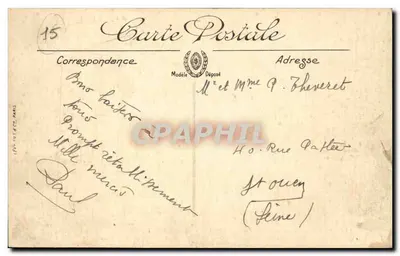 15
Carte Postale
Correspondance
Adresse
Modèle Déposé
Bons baisers à
tous
Prompt rétablissement
Mille mercis
Paul
Mr et Mme P. Theveret
40 Rue
St Ouen
(Seine)
CPArama.com